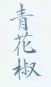 青花椒